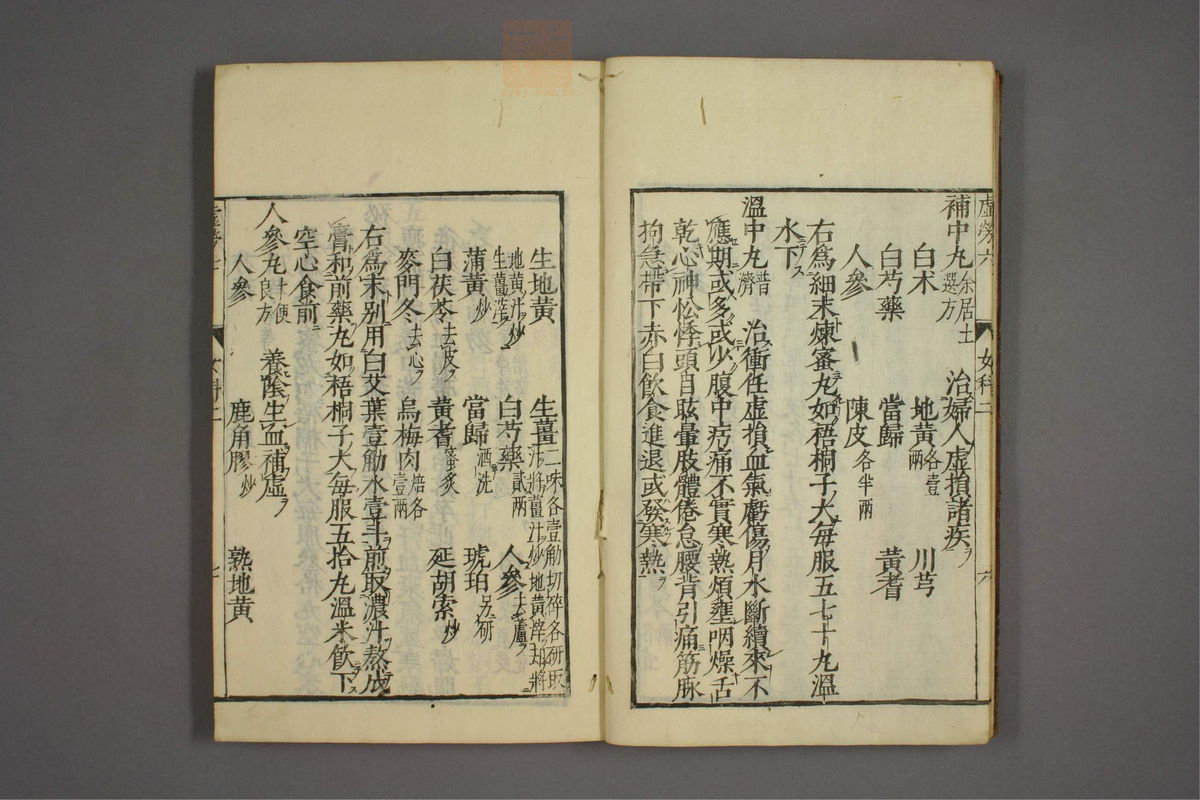 補中丸余居士選方 治婦人虛損諸疾ヲ
白朮 地黃各壹兩 川芎
白芍藥 當歸 黃耆
人參 陳皮各半兩
右爲細末煉蜜丸如梧桐子大每服五七十丸溫
水下
溫中丸普濟 治衝任虛損血氣虧傷月水斷續來不
應期或多或少腹中疠痛不實寒熱煩壅咽燥舌
乾心神忪悸頭目眩暈肢體倦怠腰背引痛筋脉
拘急帶下赤白飲食進退或發寒熱
生地黃 生薑二味各壹觔切碎各研取汁將薑汁炒地黃滓却將
地黃汁炒生薑滓 白芍藥貳兩 人參去蘆
蒲黃炒 當歸酒洗 琥珀另研
白茯苓去皮 黃耆蜜炙 延胡索炒
麥門冬去心 烏梅肉焙各壹兩
右爲末別用白艾葉壹觔水壹斗煎取濃汁熬成
膏和前藥丸如梧桐子大每服五拾丸溫米飲下
空心食前
人參丸十便良方 養陰生血補虛
人參 鹿角膠炒 熟地黃
虛勞六 女科二 六
女科二 七